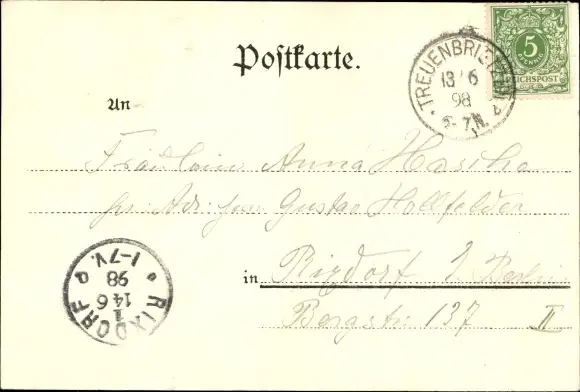 Postkarte.
5
PFENNIG
REICHSPOST
TREUENBRIETZEN
13 6
98
5-7N.
An
Fräulein Anna
pr. Adr. Gustav
in Rixdorf b. Berlin
Bergstr. 137 II
RIXDORF
1
14 6
98
1-7V.